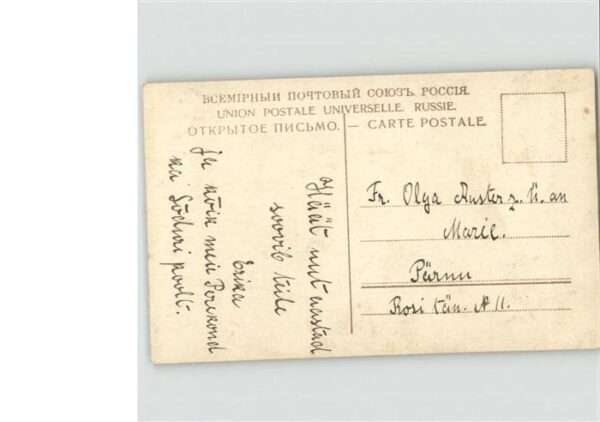 ВСЕМІРНЫЙ ПОЧТОВЫЙ СОЮЗЪ. РОССІЯ.
UNION POSTALE UNIVERSELLE. RUSSIE.
ОТКРЫТОЕ ПИСЬМО. — CARTE POSTALE.
Häät uut aastad
soovib teile
Erika
ja kõik meie Perekond
ka Sõduri poolt.
Fr. Olga Auster z. Ü. an
Marie.
Pärnu
Rosi tän. № 11.